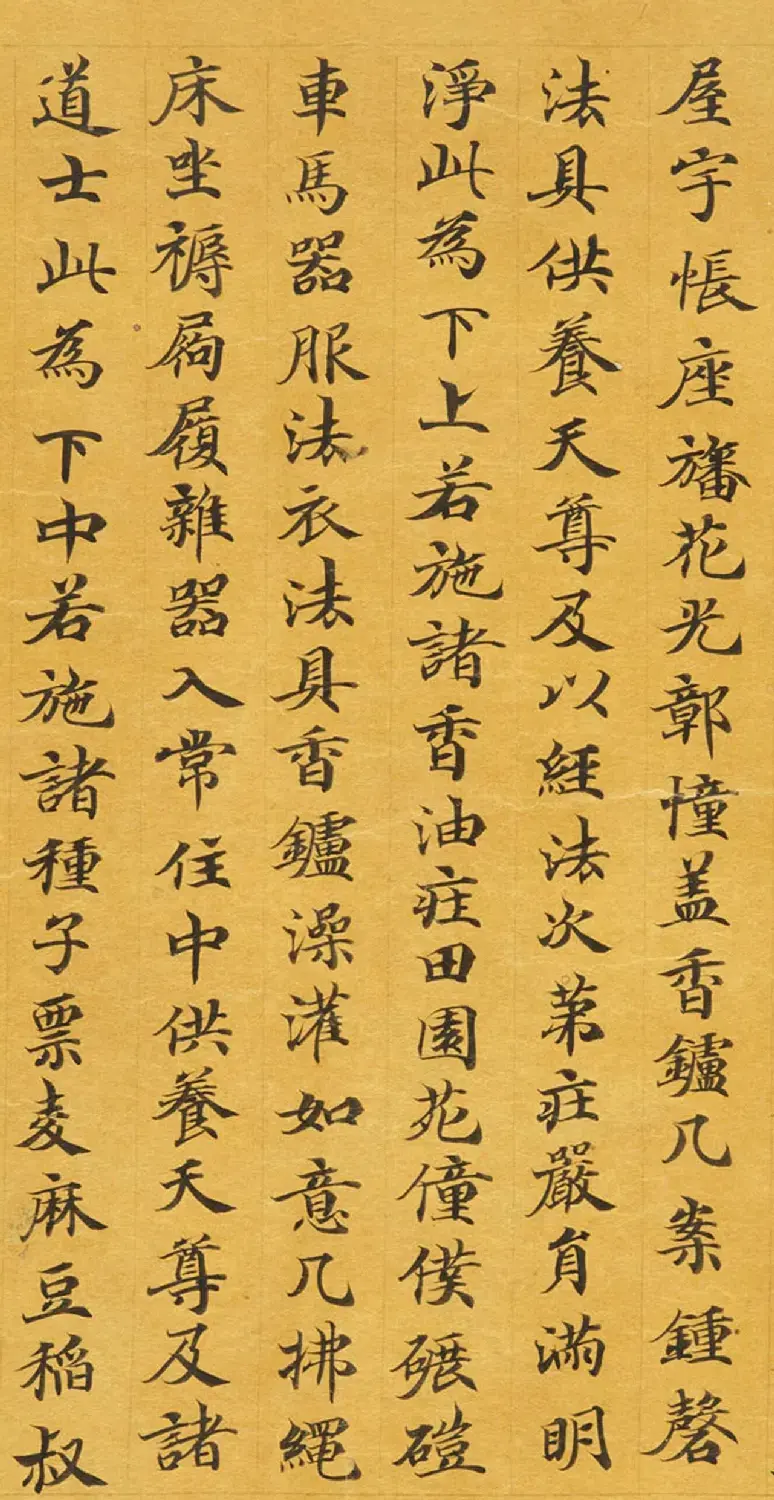 屋宇帳座旛花光鄣憧盖香鑪几案鍾磬
法具供養天尊及以經法次苐㽵嚴貟滿明
淨此為下上若施諸香油㽵田園苑僮僕碾磑
車馬器服法衣法具香鑪澡灌如意几拂繩
床坐褥屩履雜器入常住中供養天尊及諸
道士此為下中若施諸種子票麦麻豆稻叔